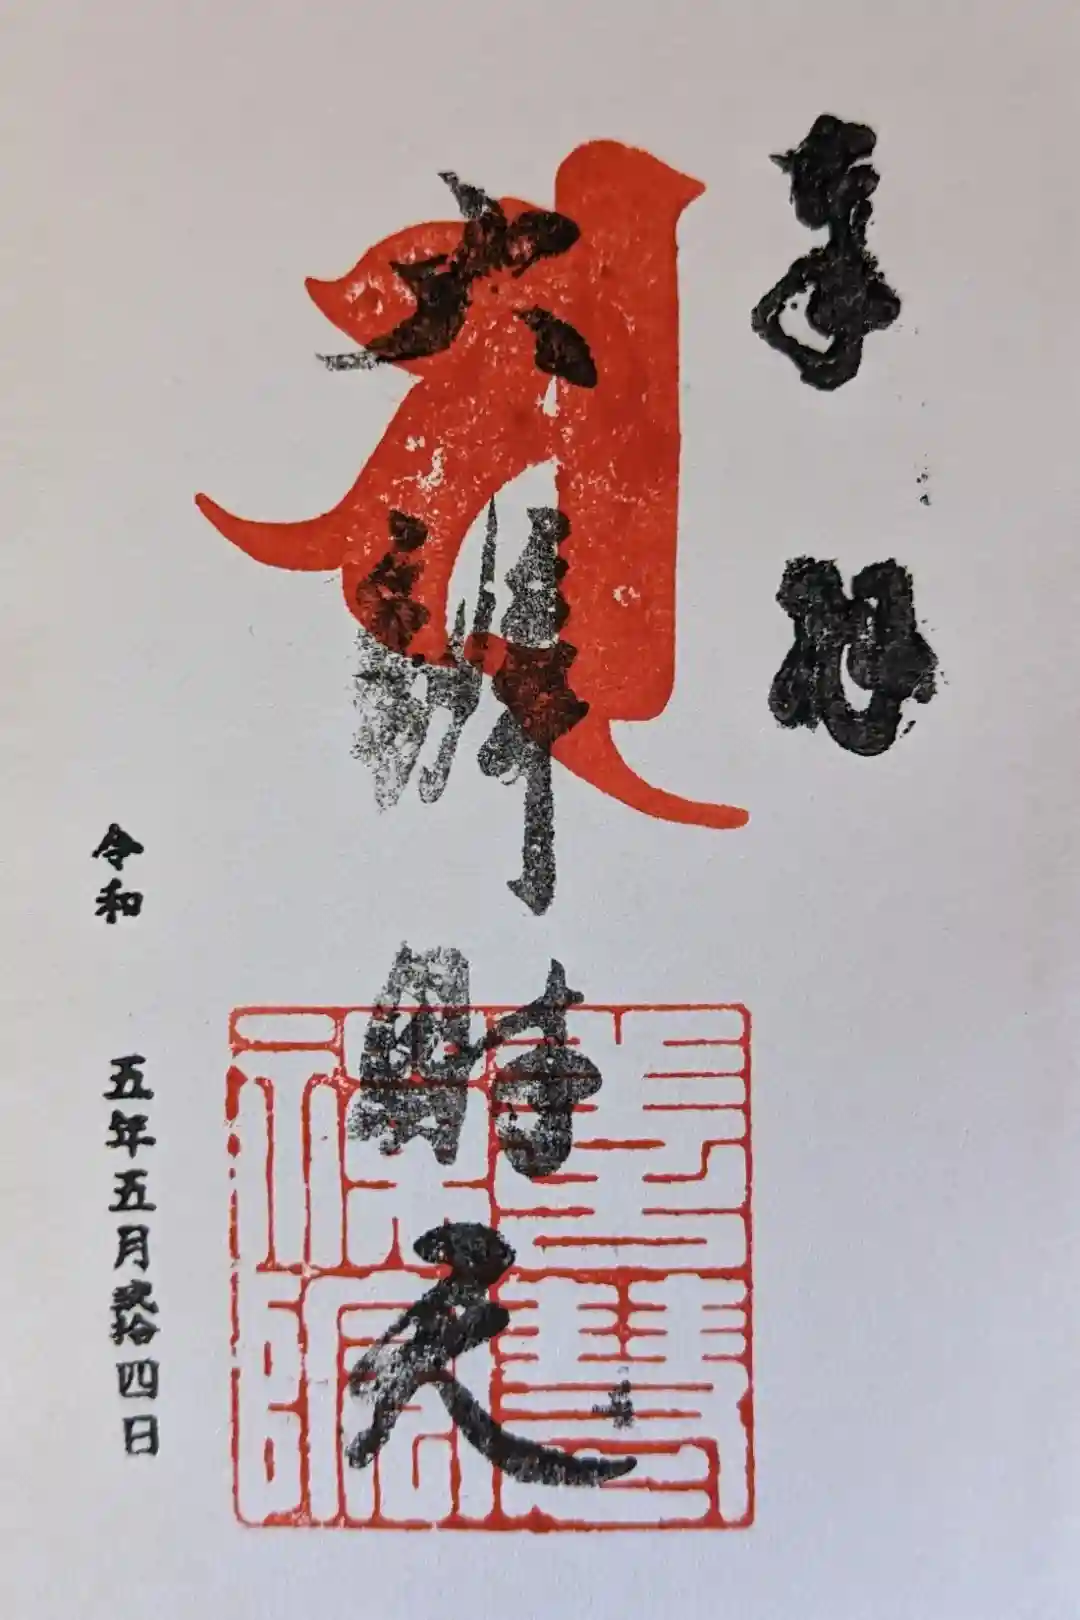 奉拝
大辨財天
令和 五年五月貳拾四日